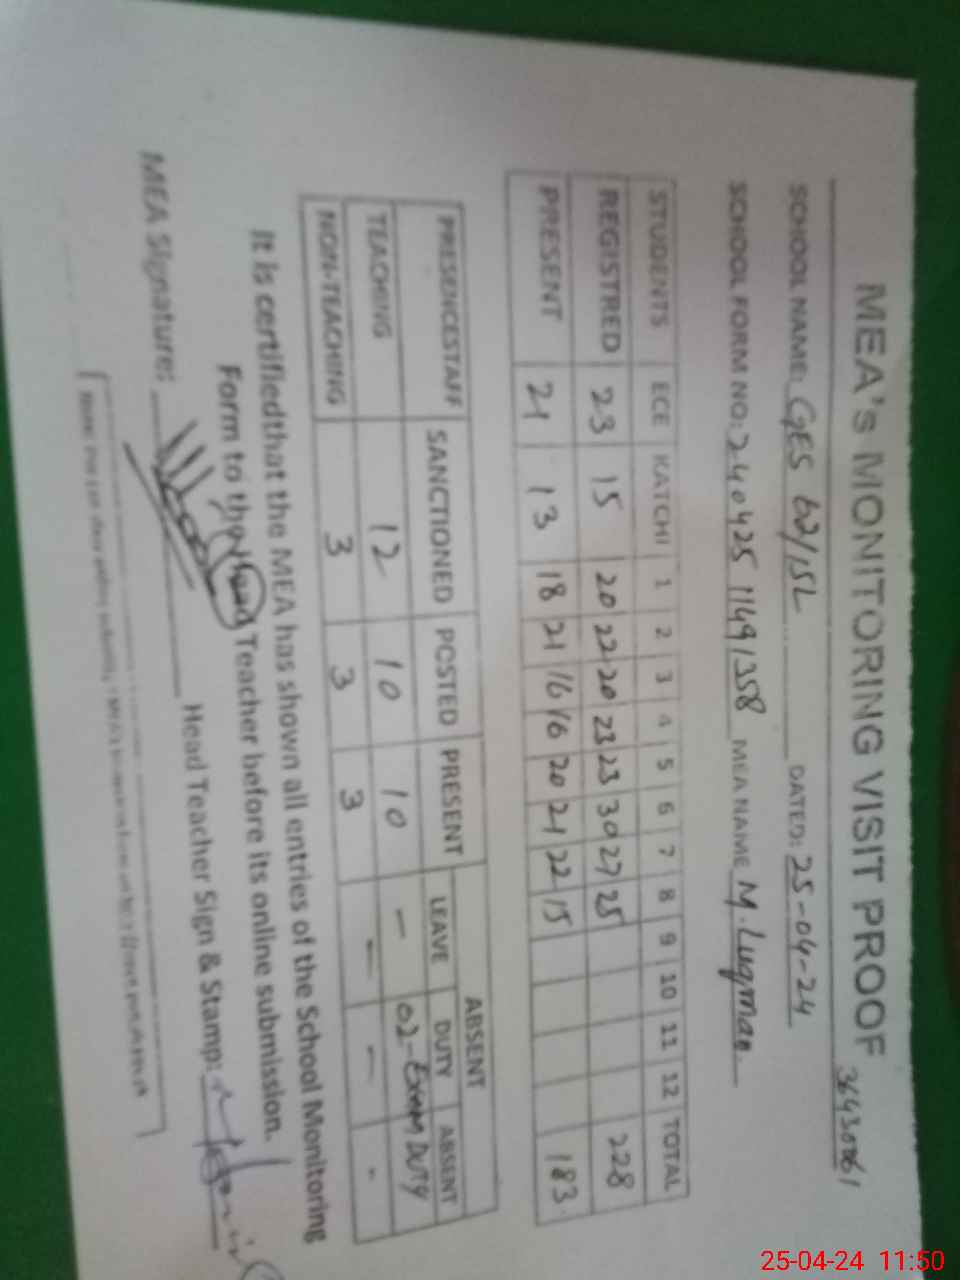 MEA's MONITORING VISIT PROOF
36430061
SCHOOL NAME: GES 62/15L DATED: 25-04-24
SCHOOL FORM NO: 240425 11491358 MEA NAME M. Luqman
STUDENTS ECE KATCHI 1 2 3 4 5 6 7 8 9 10 11 12 TOTAL
REGISTRED 23 15 20 22 20 23 23 30 27 25 228
PRESENT 21 13 18 21 16 16 20 21 22 15 183
PRESENCESTAFF SANCTIONED POSTED PRESENT ABSENT
LEAVE DUTY ABSENT
TEACHING 12 10 10 - 02-Exam DUTY
NON-TEACHING 3 3 3 - - -
It is certifiedthat the MEA has shown all entries of the School Monitoring
Form to the Head Teacher before its online submission.
MEA Signature: Head Teacher Sign & Stamp:
25-04-24 11:50